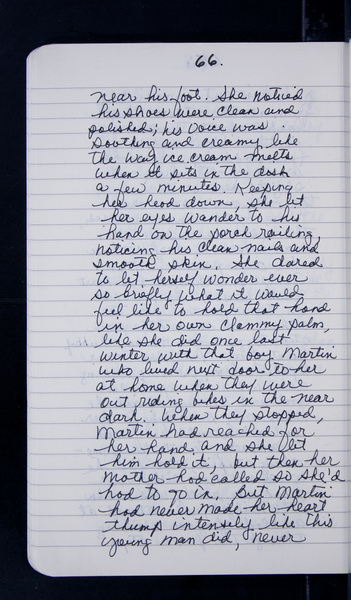 66.
near his foot. She noticed
his shoes were clean and
polished; his voice was
soothing and creamy like
the way ice cream melts
when it sits in the dish
a few minutes. Keeping
her head down, she let
her eyes wander to his
hand on the porch railing,
noticing his clean nails and
smooth skin. She dared
to let herself wonder ever
so briefly what it would
feel like to hold that hand
in her own clammy palm,
like she did once last
winter with that boy Martin
who lived next door to her
at home when they were
out riding bikes in the near
dark. When they stopped,
Martin had reached for
her hand and she let
him hold it, but then her
mother had called so she'd
had to go in. But Martin
had never made her heart
thump intensely like this
young man did, never